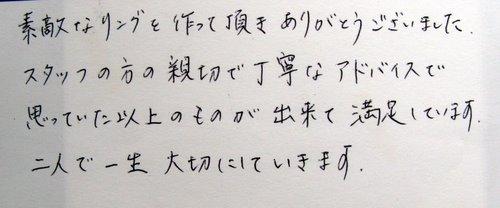 素敵なリングを作って頂きありがとうございました.
スタッフの方の親切で丁寧なアドバイスで
思っていた以上のものが出来て満足しています.
二人で一生大切にしていきます.